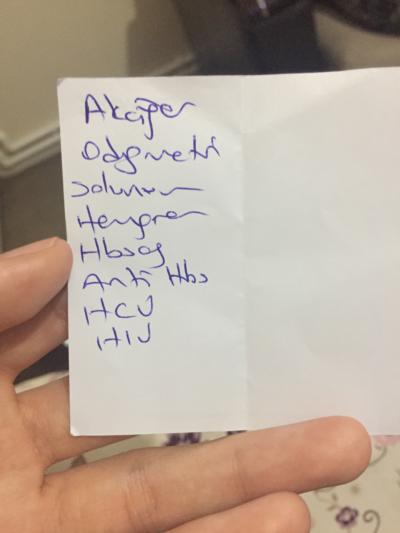 Akciğer
Odyometri
Solunum
Hemogram
Hbsag
Anti Hbs
HCV
HIV